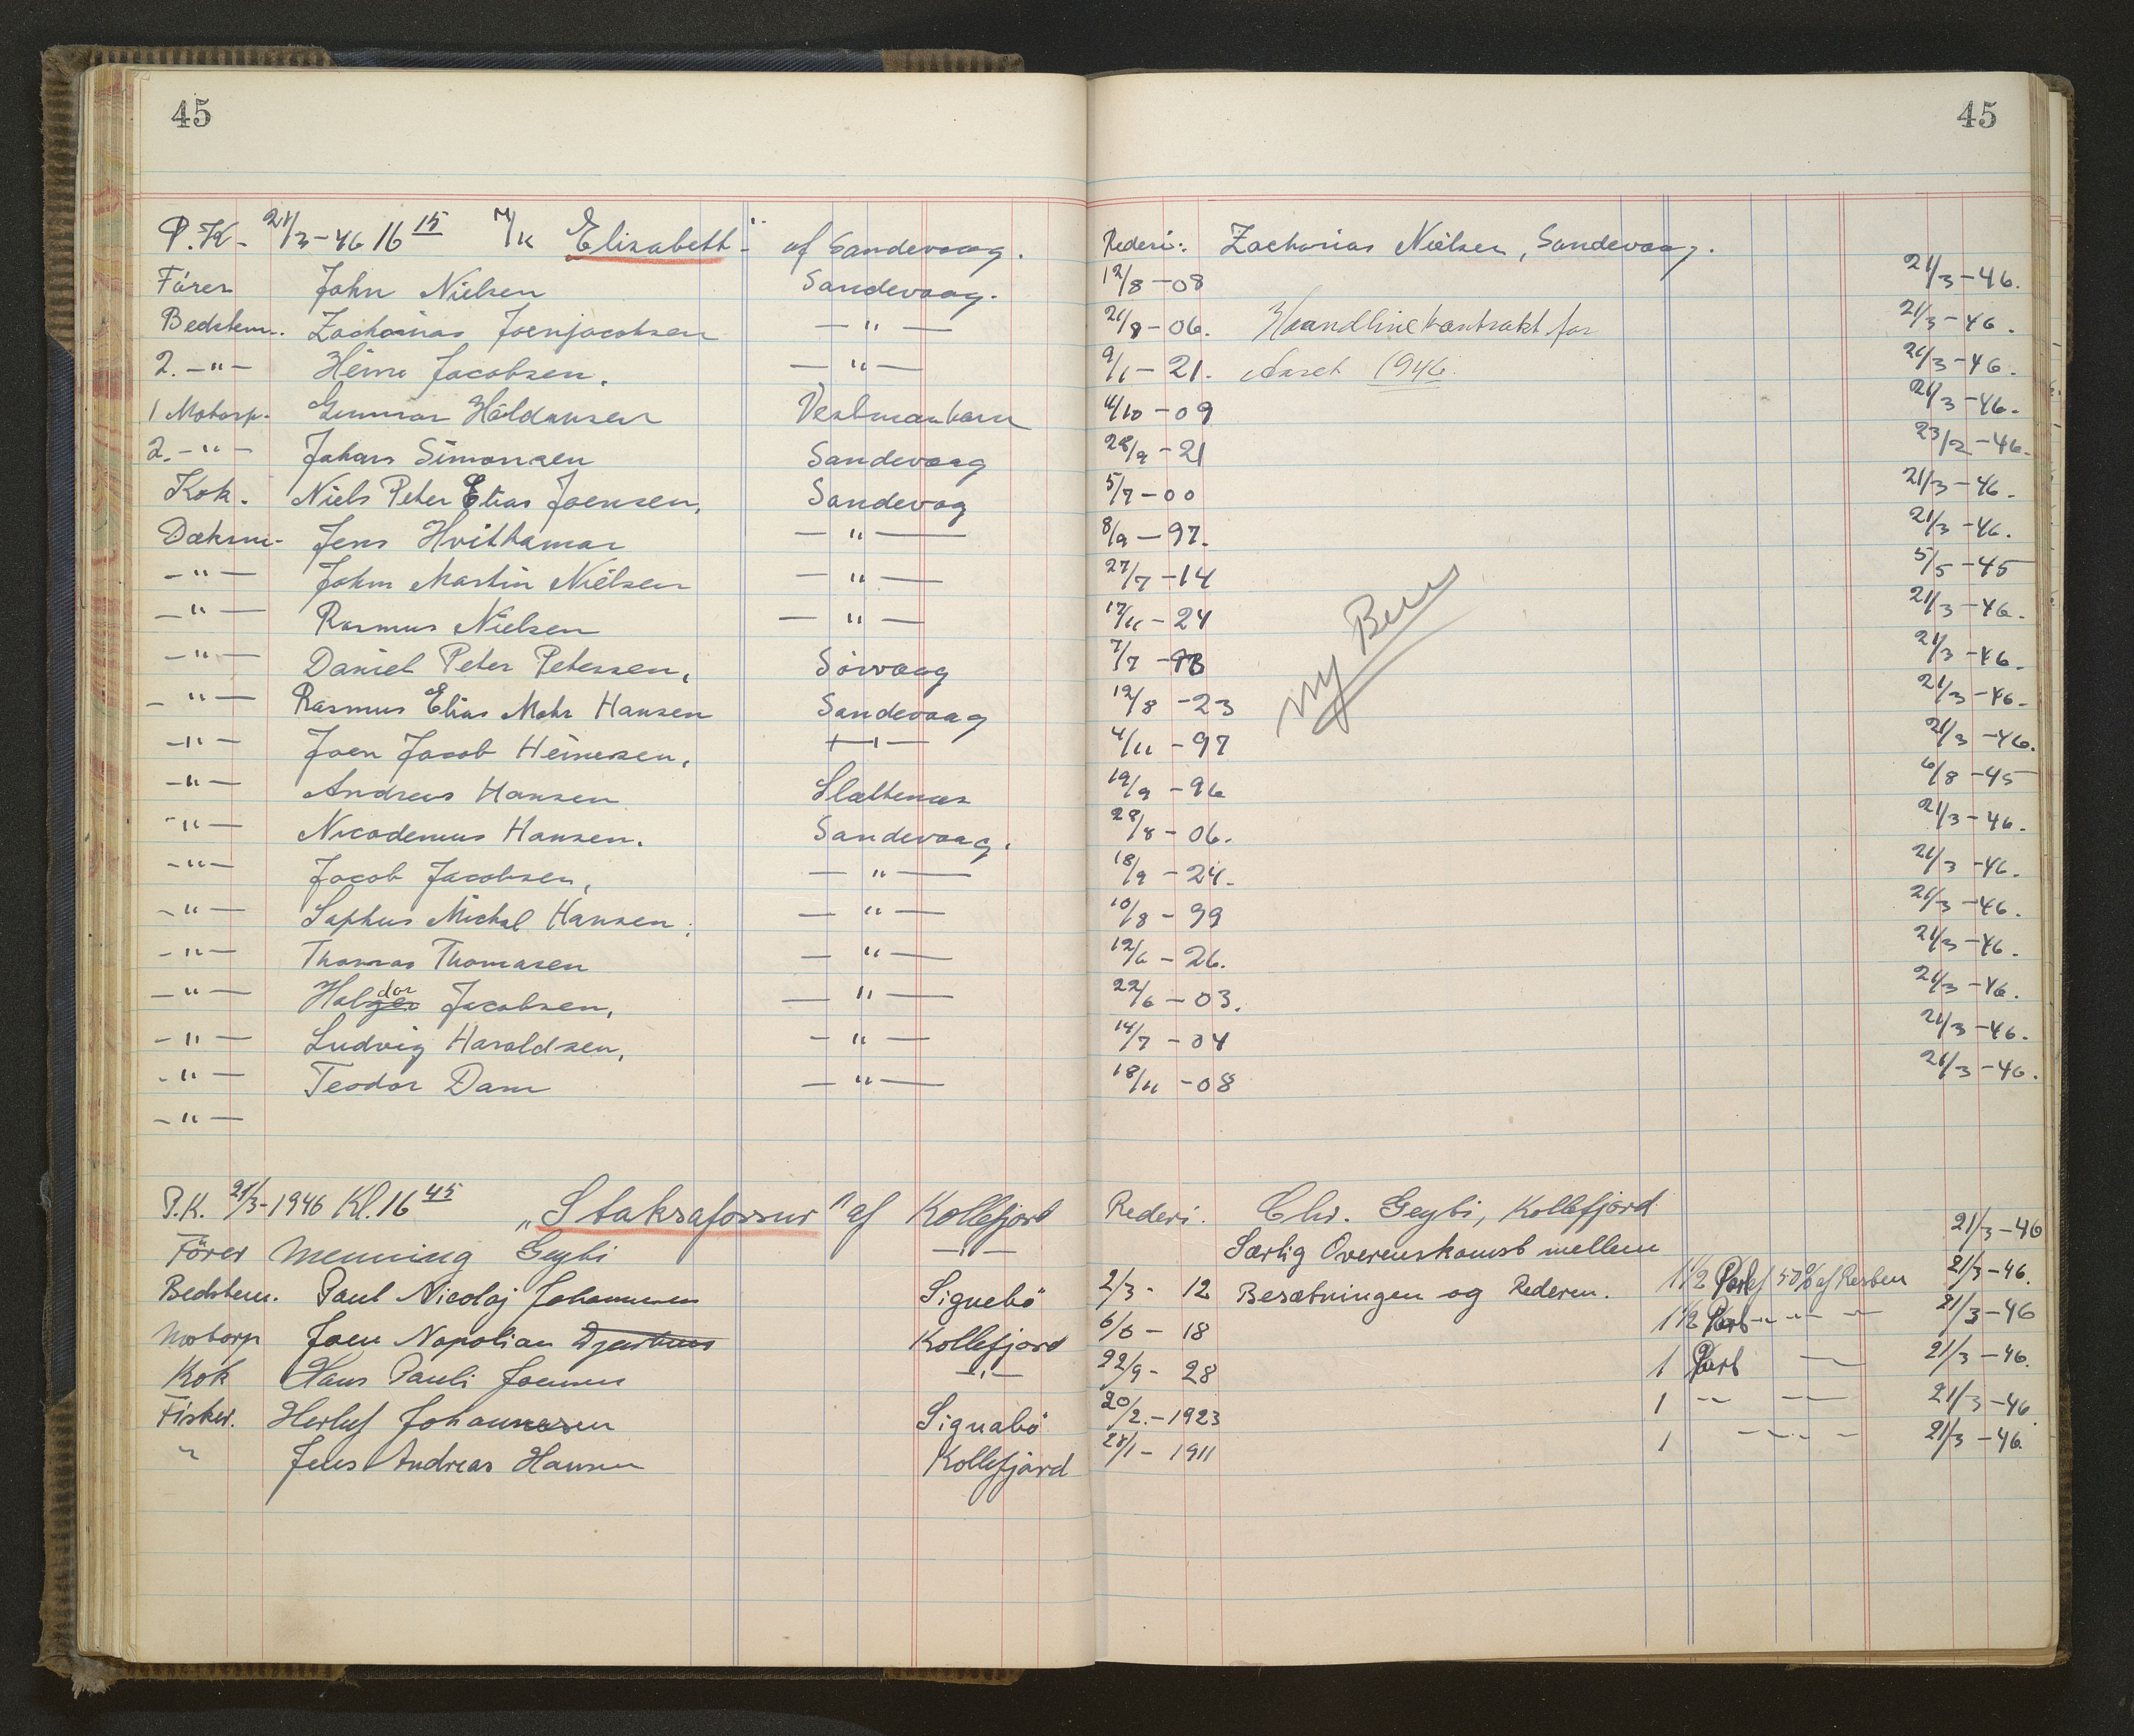 45 45
P.K. 21/3-46 16 15 M/K „Elisabeth“ af Sandevaag. Rederi: Zacharias Nielsen, Sandevaag.
Fører John Nielsen Sandevaag. 12/8-08 21/3-46.
Bedstem. Zacharias Joenjacobsen —"— 21/8-06. Haandlinekontrakt for 21/3-46.
2. —"— Heine Jacobsen. —"— 9/1-21. Aaret 1946. 21/3-46.
1 Motorp. Gunnar Haldansen Vestmanhavn 4/10-09 21/3-46.
2. —"— Johans Simonsen Sandevaag 28/9-21 23/2-46.
Kok. Niels Peter Elias Joensen, Sandevog 5/7-00 21/3-46.
Dæksm- Jens Hvithamar —"— 8/9-97. 21/3-46.
—"— John Martin Nielsen —"— 27/7-14 5/5-45
—"— Rasmus Nielsen —"— 17/11-24 21/3-46.
—"— Daniel Peter Petersen, Sörvaag 7/7- 21/3-46.
—"— Rasmus Elias Mohr Hansen Sandevaag 12/8-23 21/3-46.
—"— Joen Jacob Heinesen, —"— 4/11-97 21/3-46.
—"— Andreas Hansen Slættenæs 19/9-96 6/8-45
—"— Nicodemus Hansen. Sandevaag. 28/8-06. 21/3-46.
—"— Jacob Jacobsen, —"— 18/9-24. 21/3-46.
—"— Sophus Michal Hansen. —"— 10/8-99 21/3-46.
—"— Thomas Thomasen —"— 12/6-26. 21/3-46.
—"— Haldor Jacobsen, —"— 22/6-03. 21/3-46.
—"— Ludvig Haroldsen, —"— 14/7-04 21/3-46.
—"— Teodor Dam —"— 18/11-08 21/3-46.
—"—
ny
P.K. 21/3-1946 Kl. 16 45 „Staksafossur“ af Kollefjord Rederi. Chr. Geyti, Kollefjord
Förer Menning Geyti —"— Særlig Overenskomst mellem 21/3-46
Bedstem. Paul Nicolaj Johannesen Signebö 2/3- 12 Besætningen og Rederen. 1 1/2 Part af 50% af Resten 21/3-46.
Motorp Joen Napolian Kollefjord 6/6- 18 1 1/2 Part —"— 21/3-46
Kok Hans Pauli Joensen —"— 22/9- 28 1 Part — 21/3-46.
Fisker. Herluf Johannesen Signabö 20/2.-1923 1 —"— 21/3-46
" Jens Andreas Hansen Kollefjord 28/1- 1911 1 —"— 21/3-46.